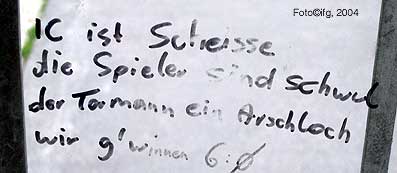 Foto©ifg, 2004
IC ist Scheisse
die Spieler sind schwul
der Tormann ein Arschloch
wir g'winnen 6:0